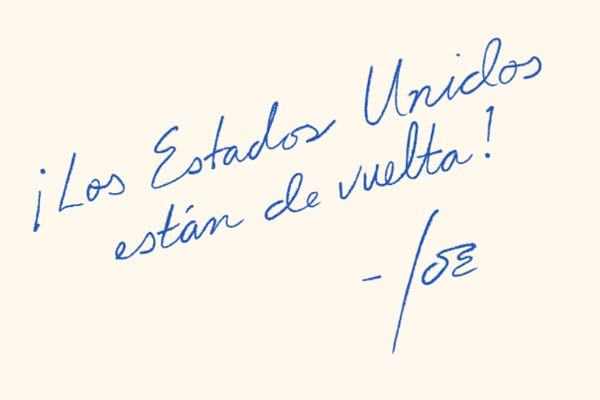 ¡Los Estados Unidos
están de vuelta!
- Joe